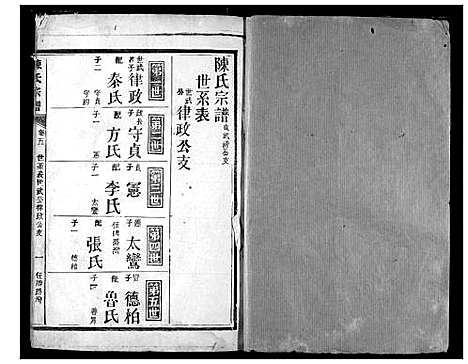 陳氏宗譜
世系表
世武公 律政公支
第一世
律政
配
秦氏
子二
守貞
守約
第二世
守貞
配
方氏
子一
憲
第三世
憲
配
李氏
子一
太鸞
第四世
太鸞
配
張氏
子一
德柏
第五世
德柏
配
魯氏
子二
陳氏宗譜
卷五
世系表
一